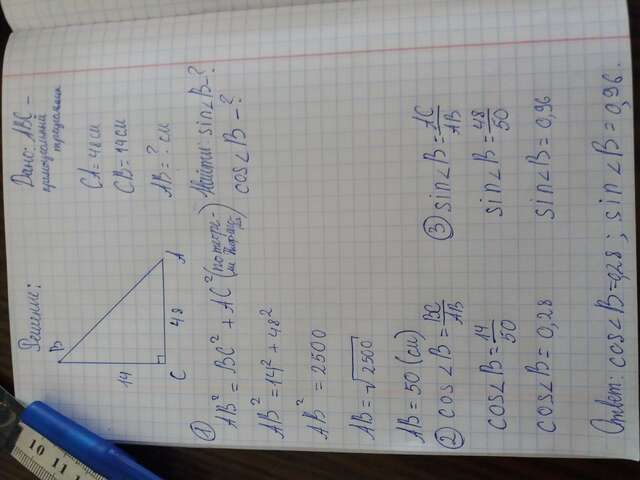 Дано: ABC –
прямоугольный
треугольник
CA = 48 см
CB = 14 см
AB = ? см
Найти: sin∠B – ?
cos∠B – ?
Решение:
B
14
C
48
A
① AB² = BC² + AC² (по теоре-
ме Пифаго-
ра)
AB² = 14² + 48²
AB² = 2500
AB = √2500
AB = 50 (см)
② cos∠B = BC/AB
cos∠B = 14/50
cos∠B = 0,28
③ sin∠B = AC/AB
sin∠B = 48/50
sin∠B = 0,96
Ответ: cos∠B = 0,28 ; sin∠B = 0,96.
10 11